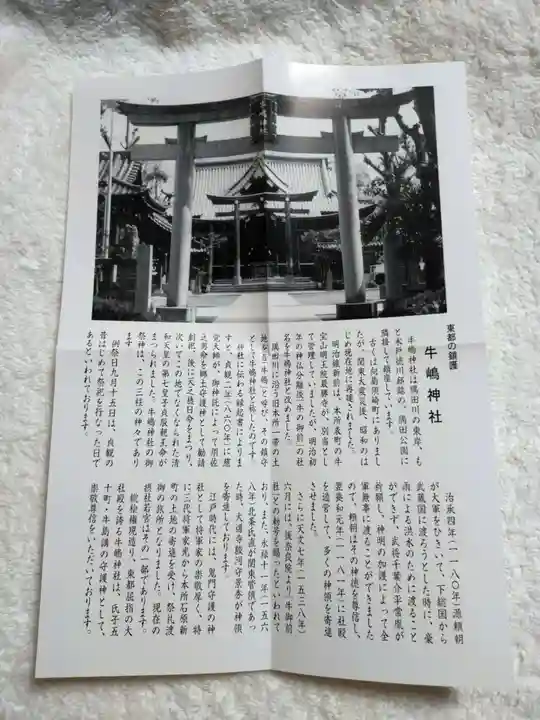 東都の鎮護
牛嶋神社
牛嶋神社は隅田川の東岸、も
と水戸徳川邸跡の、隅田公園に
隣接して鎮座しています。
古くは向島須崎町にありまし
たが、関東大震災後、昭和のは
じめ現在地に再建されました。
明治維新前は、本所表町の牛
宝山明王院最勝寺が、別当とし
て管理していましたが、明治初
年の神仏分離後「牛の御前」の社
名を牛嶋神社と改めました。
隅田川に沿う旧本所一帯の土
地を昔「牛嶋」と呼び、その鎮守
として牛嶋神社と称したのです。
神社に伝わる縁起書によりま
すと、貞観二年(八六〇年)に慈
覚大師が、御神託によって須佐
之男命を郷土守護神として勧請
創祀、後に天之穂日命をまつり、
次いでこの地でなくなられた清
和天皇の第七皇子貞辰親王命が
まつられました。牛嶋神社の御
祭神は、この三柱の神々であり
ます。
例祭日九月十五日は、貞観の
昔はじめて祭祀を行なった日で
あるといわれております。
治承四年(一一八〇年)源頼朝
が大軍をひきいて、下総国から
武蔵国に渡ろうとした時に、豪
雨による洪水のために渡ること
ができず、武将千葉介平常胤が
祈願し、神明の加護によって全
軍無事に渡ることができました
ので、頼朝はその神徳を尊信し、
翌養和元年(一一八一年)に社殿
を造営して、多くの神領を寄進
させました。
さらに天文七年(一五三八年)
六月には、後奈良院より「牛御前
社」との勅号を賜ったといわれて
おり、また、永禄十一年(一五六
八年)北条氏直が関東管領であっ
た時、大道寺駿河守景秀が神領
を寄進しております。
江戸時代には、鬼門守護の神
社として将軍家の崇敬厚く、特
に三代将軍家光から本所石原新
町の土地の寄進を受け、祭礼渡
御の旅所となりました。現在の
摂社若宮はその一部であります。
総桧権現造り、東都屈指の大
社殿を誇る牛嶋神社は、氏子五
十町・牛島講の守護神として、
崇敬尊信をいただいております。